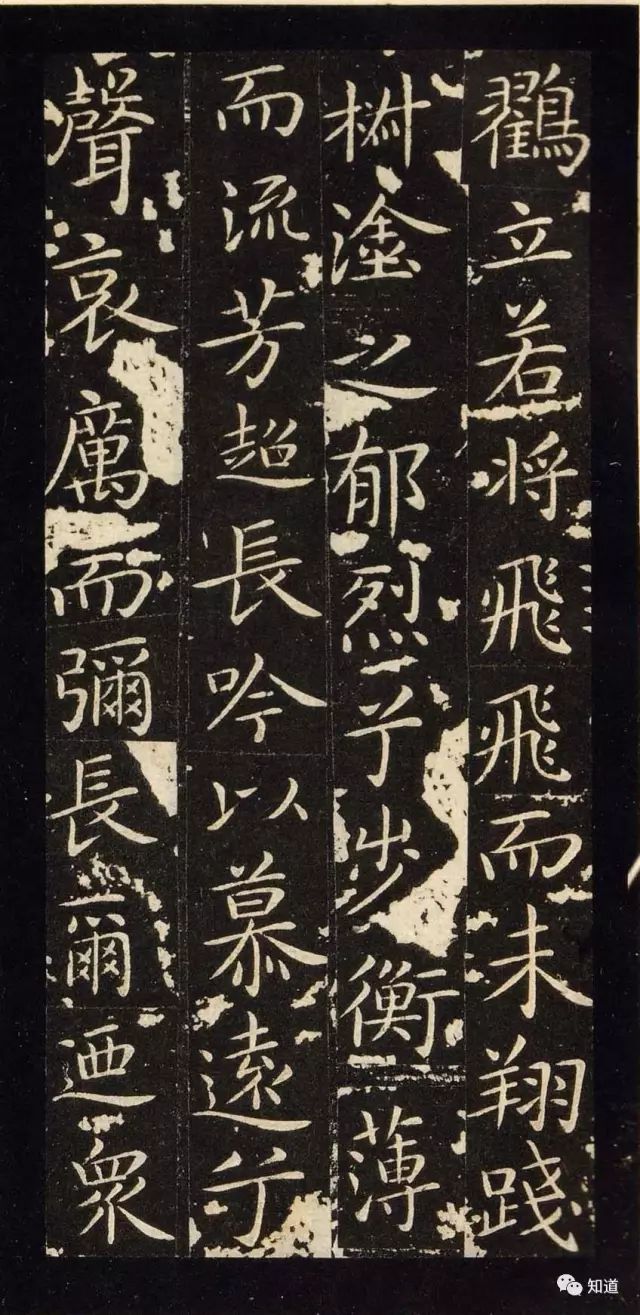 鸐立若将飛飛而未翔踐
椒塗之郁烈兮步衡薄
而流芳超長吟以慕遠兮
聲哀厲而彌長爾迺衆
知道